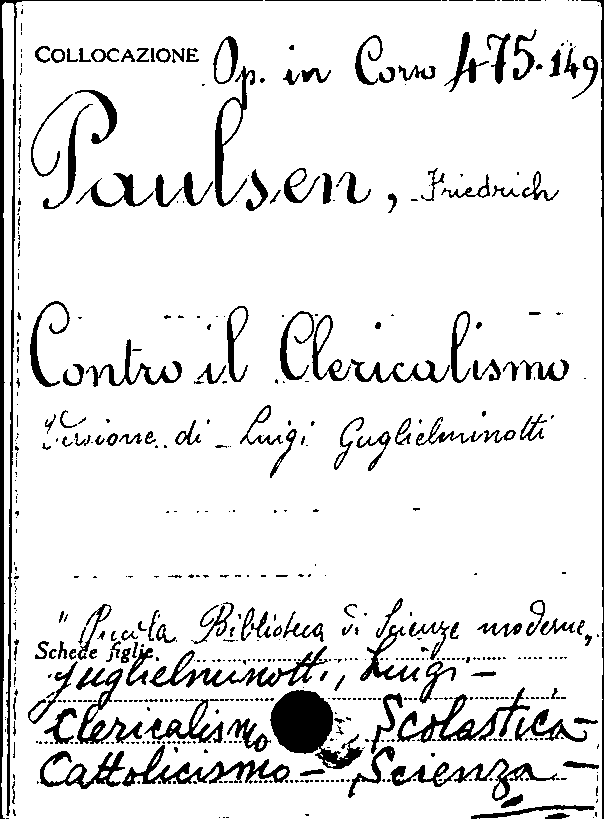 COLLOCAZIONE Op. in Corso 475.149
Paulsen, Friedrich
Contro il Clericalismo
Versione di Luigi Guglielminotti
"Piccola Biblioteca di Scienze moderne„
Schede figlie
Guglielminotti, Luigi -
Clericalismo Scolastica -
Cattolicismo - Scienza -